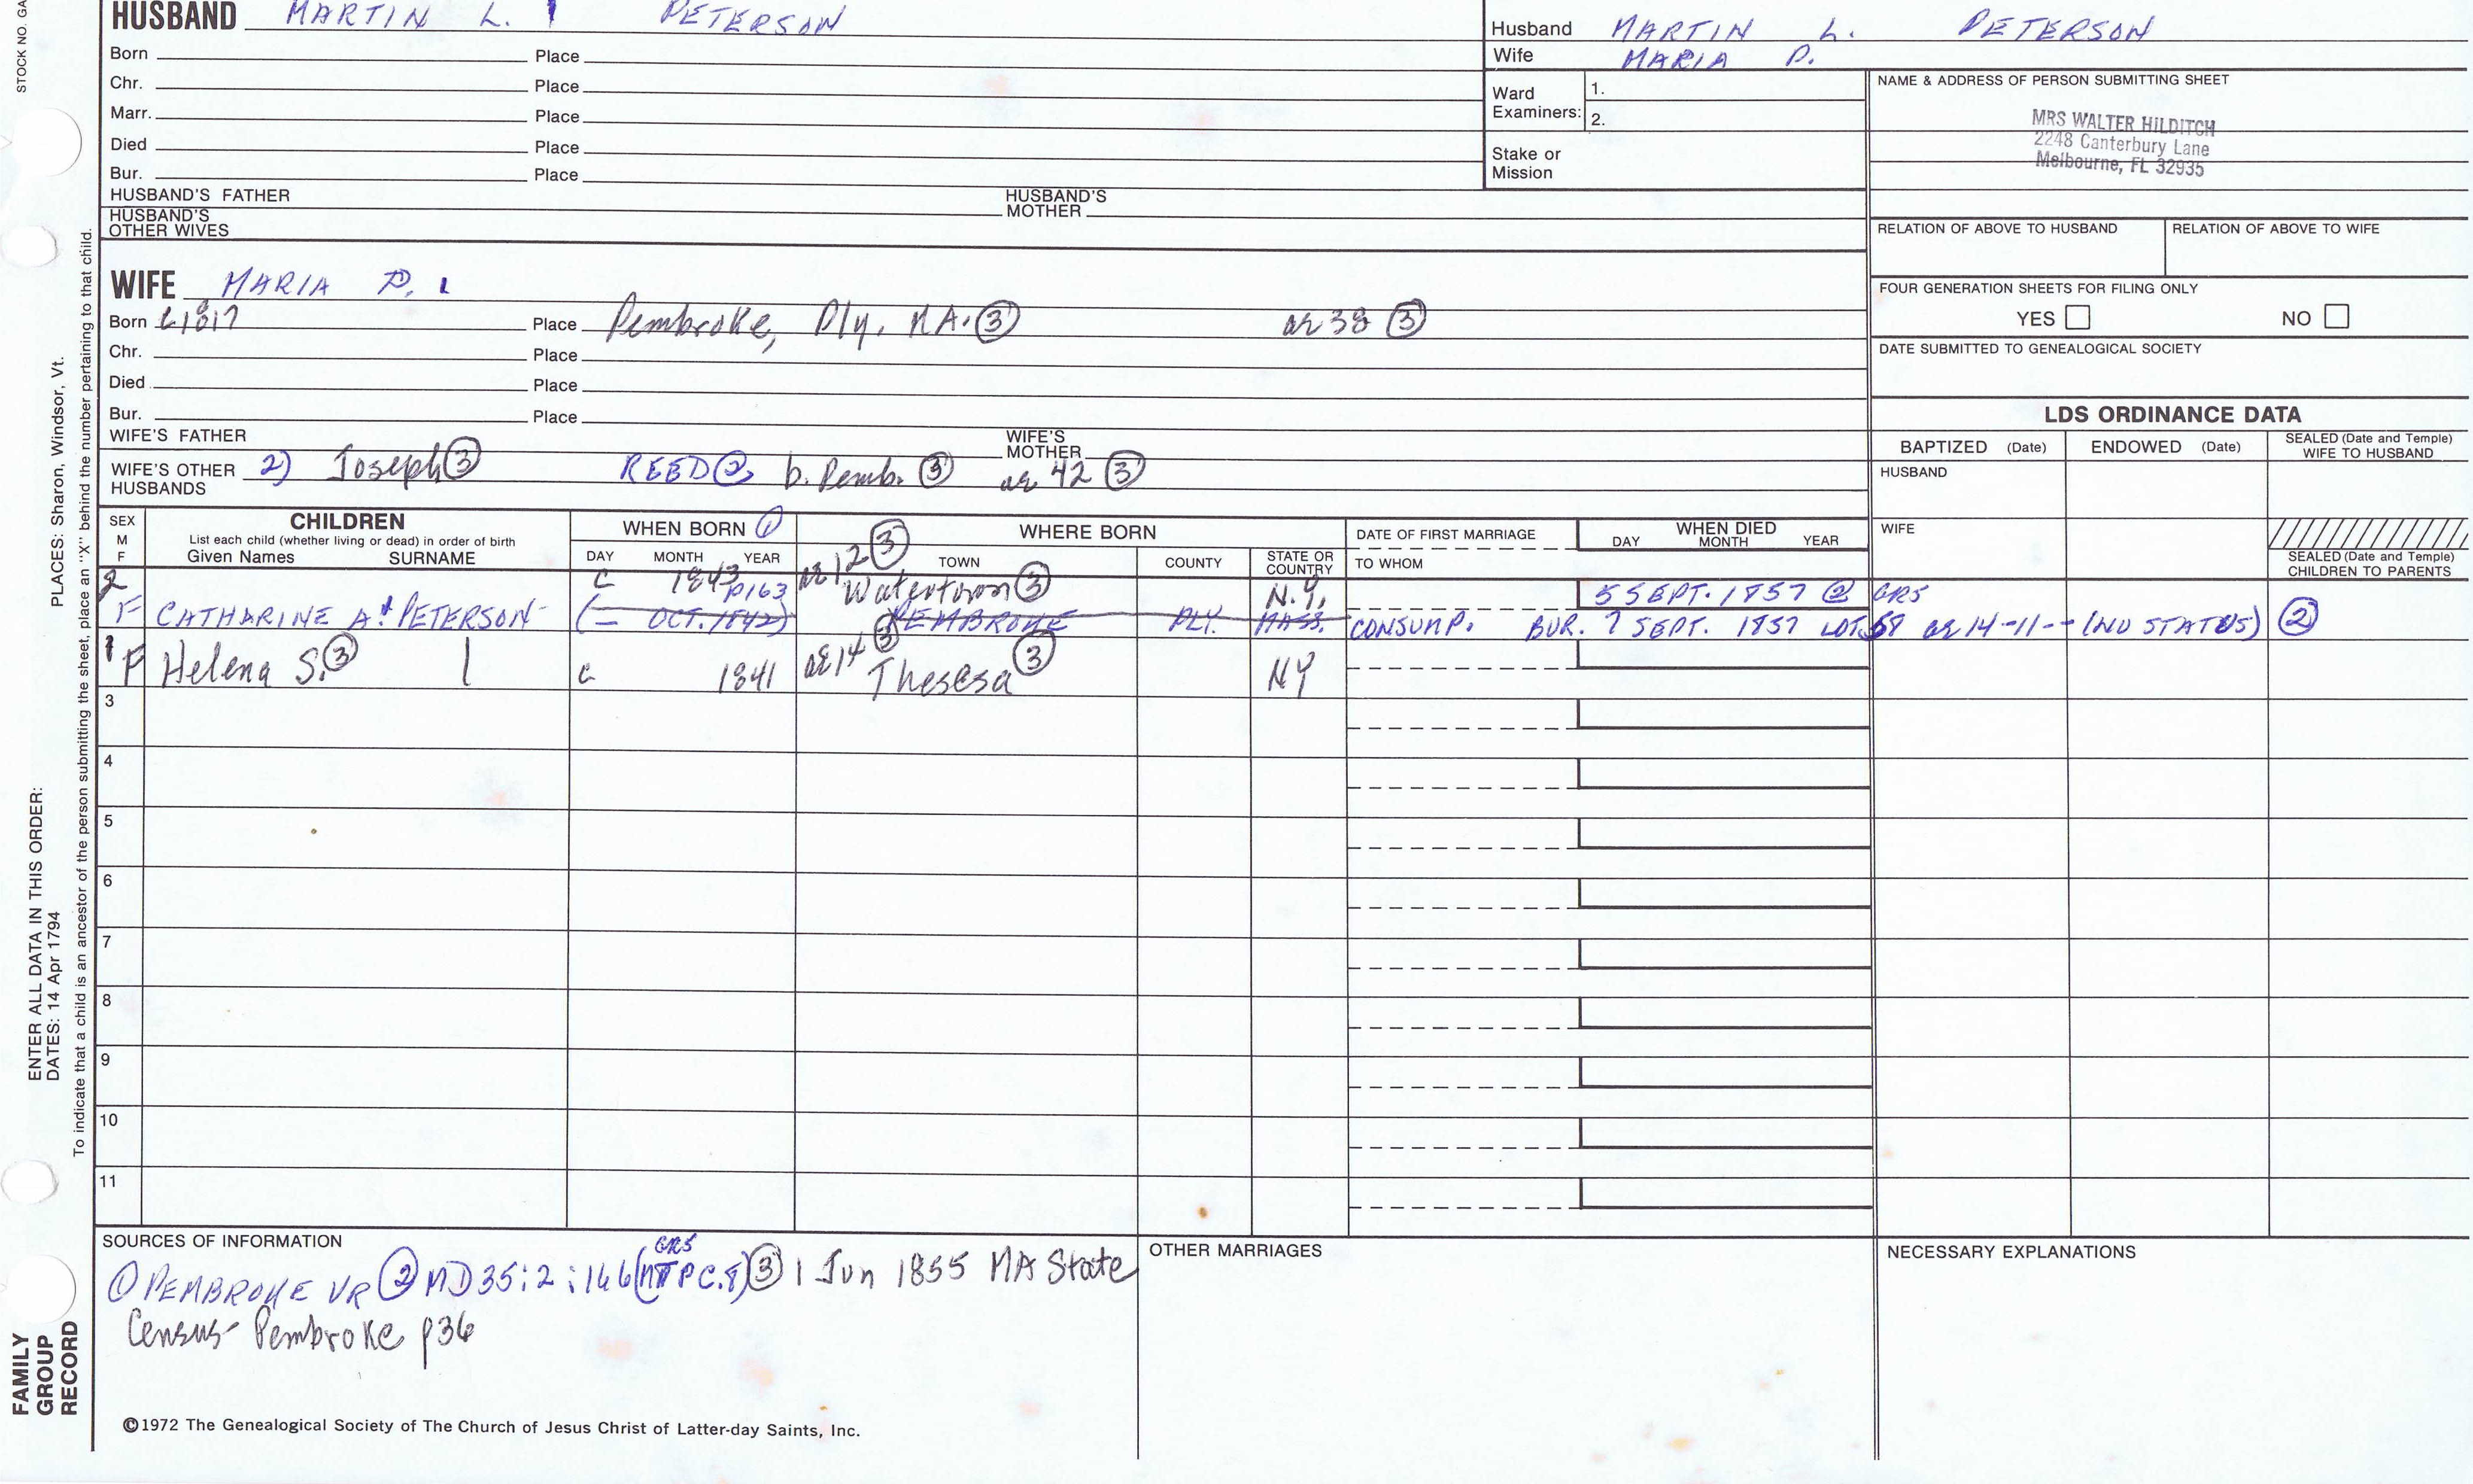 STOCK NO. GA
HUSBAND MARTIN L. 1 PETERSON
Born Place
Chr. Place
Marr. Place
Died Place
Bur. Place
HUSBAND'S FATHER
HUSBAND'S MOTHER
HUSBAND'S OTHER WIVES
Husband MARTIN L. PETERSON
Wife MARIA P.
Ward Examiners: 1.
2.
Stake or Mission
NAME & ADDRESS OF PERSON SUBMITTING SHEET
MRS WALTER HILDITCH
2248 Canterbury Lane
Melbourne, FL 32935
RELATION OF ABOVE TO HUSBAND
RELATION OF ABOVE TO WIFE
FOUR GENERATION SHEETS FOR FILING ONLY
YES NO
DATE SUBMITTED TO GENEALOGICAL SOCIETY
WIFE MARIA P. 1
Born c1817 Place Pembroke, Ply. MA. ③ ae 38 ③
Chr. Place
Died Place
Bur. Place
WIFE'S FATHER
WIFE'S MOTHER
WIFE'S OTHER HUSBANDS 2) Joseph ③ REED ② b. Pemb. ③ ae 42 ③
LDS ORDINANCE DATA
BAPTIZED (Date) ENDOWED (Date) SEALED (Date and Temple) WIFE TO HUSBAND
HUSBAND
WIFE
SEALED (Date and Temple) CHILDREN TO PARENTS
SEX M F
CHILDREN
List each child (whether living or dead) in order of birth
Given Names SURNAME
WHEN BORN ①
DAY MONTH YEAR
WHERE BORN
TOWN COUNTY STATE OR COUNTRY
DATE OF FIRST MARRIAGE
TO WHOM
WHEN DIED
DAY MONTH YEAR
2 c 1843 ae 12 ③ Watertown ③ N.Y. 5 SEPT. 1857 ② GR5
P163
F CATHARINE A. PETERSON (— OCT. 1842) PEMBROKE PLY. MASS. CONSUMP. BUR. 7 SEPT. 1857 LOT 58 ae 14-11-- (NO STATUS) ②
1 F Helena S. ③ 1 c 1841 ae 14 ③ Theresa ③ NY
3
4
5
6
7
8
9
10
11
SOURCES OF INFORMATION
① PEMBROKE VR ② MD 35:2:146 ③ 1 Jun 1855 MA State
GR5
Census Pembroke p36
OTHER MARRIAGES
NECESSARY EXPLANATIONS
©1972 The Genealogical Society of The Church of Jesus Christ of Latter-day Saints, Inc.
FAMILY GROUP RECORD
ENTER ALL DATA IN THIS ORDER:
DATES: 14 Apr 1794
PLACES: Sharon, Windsor, Vt.
To indicate that a child is an ancestor of the person submitting the sheet, place an "X" behind the number pertaining to that child.